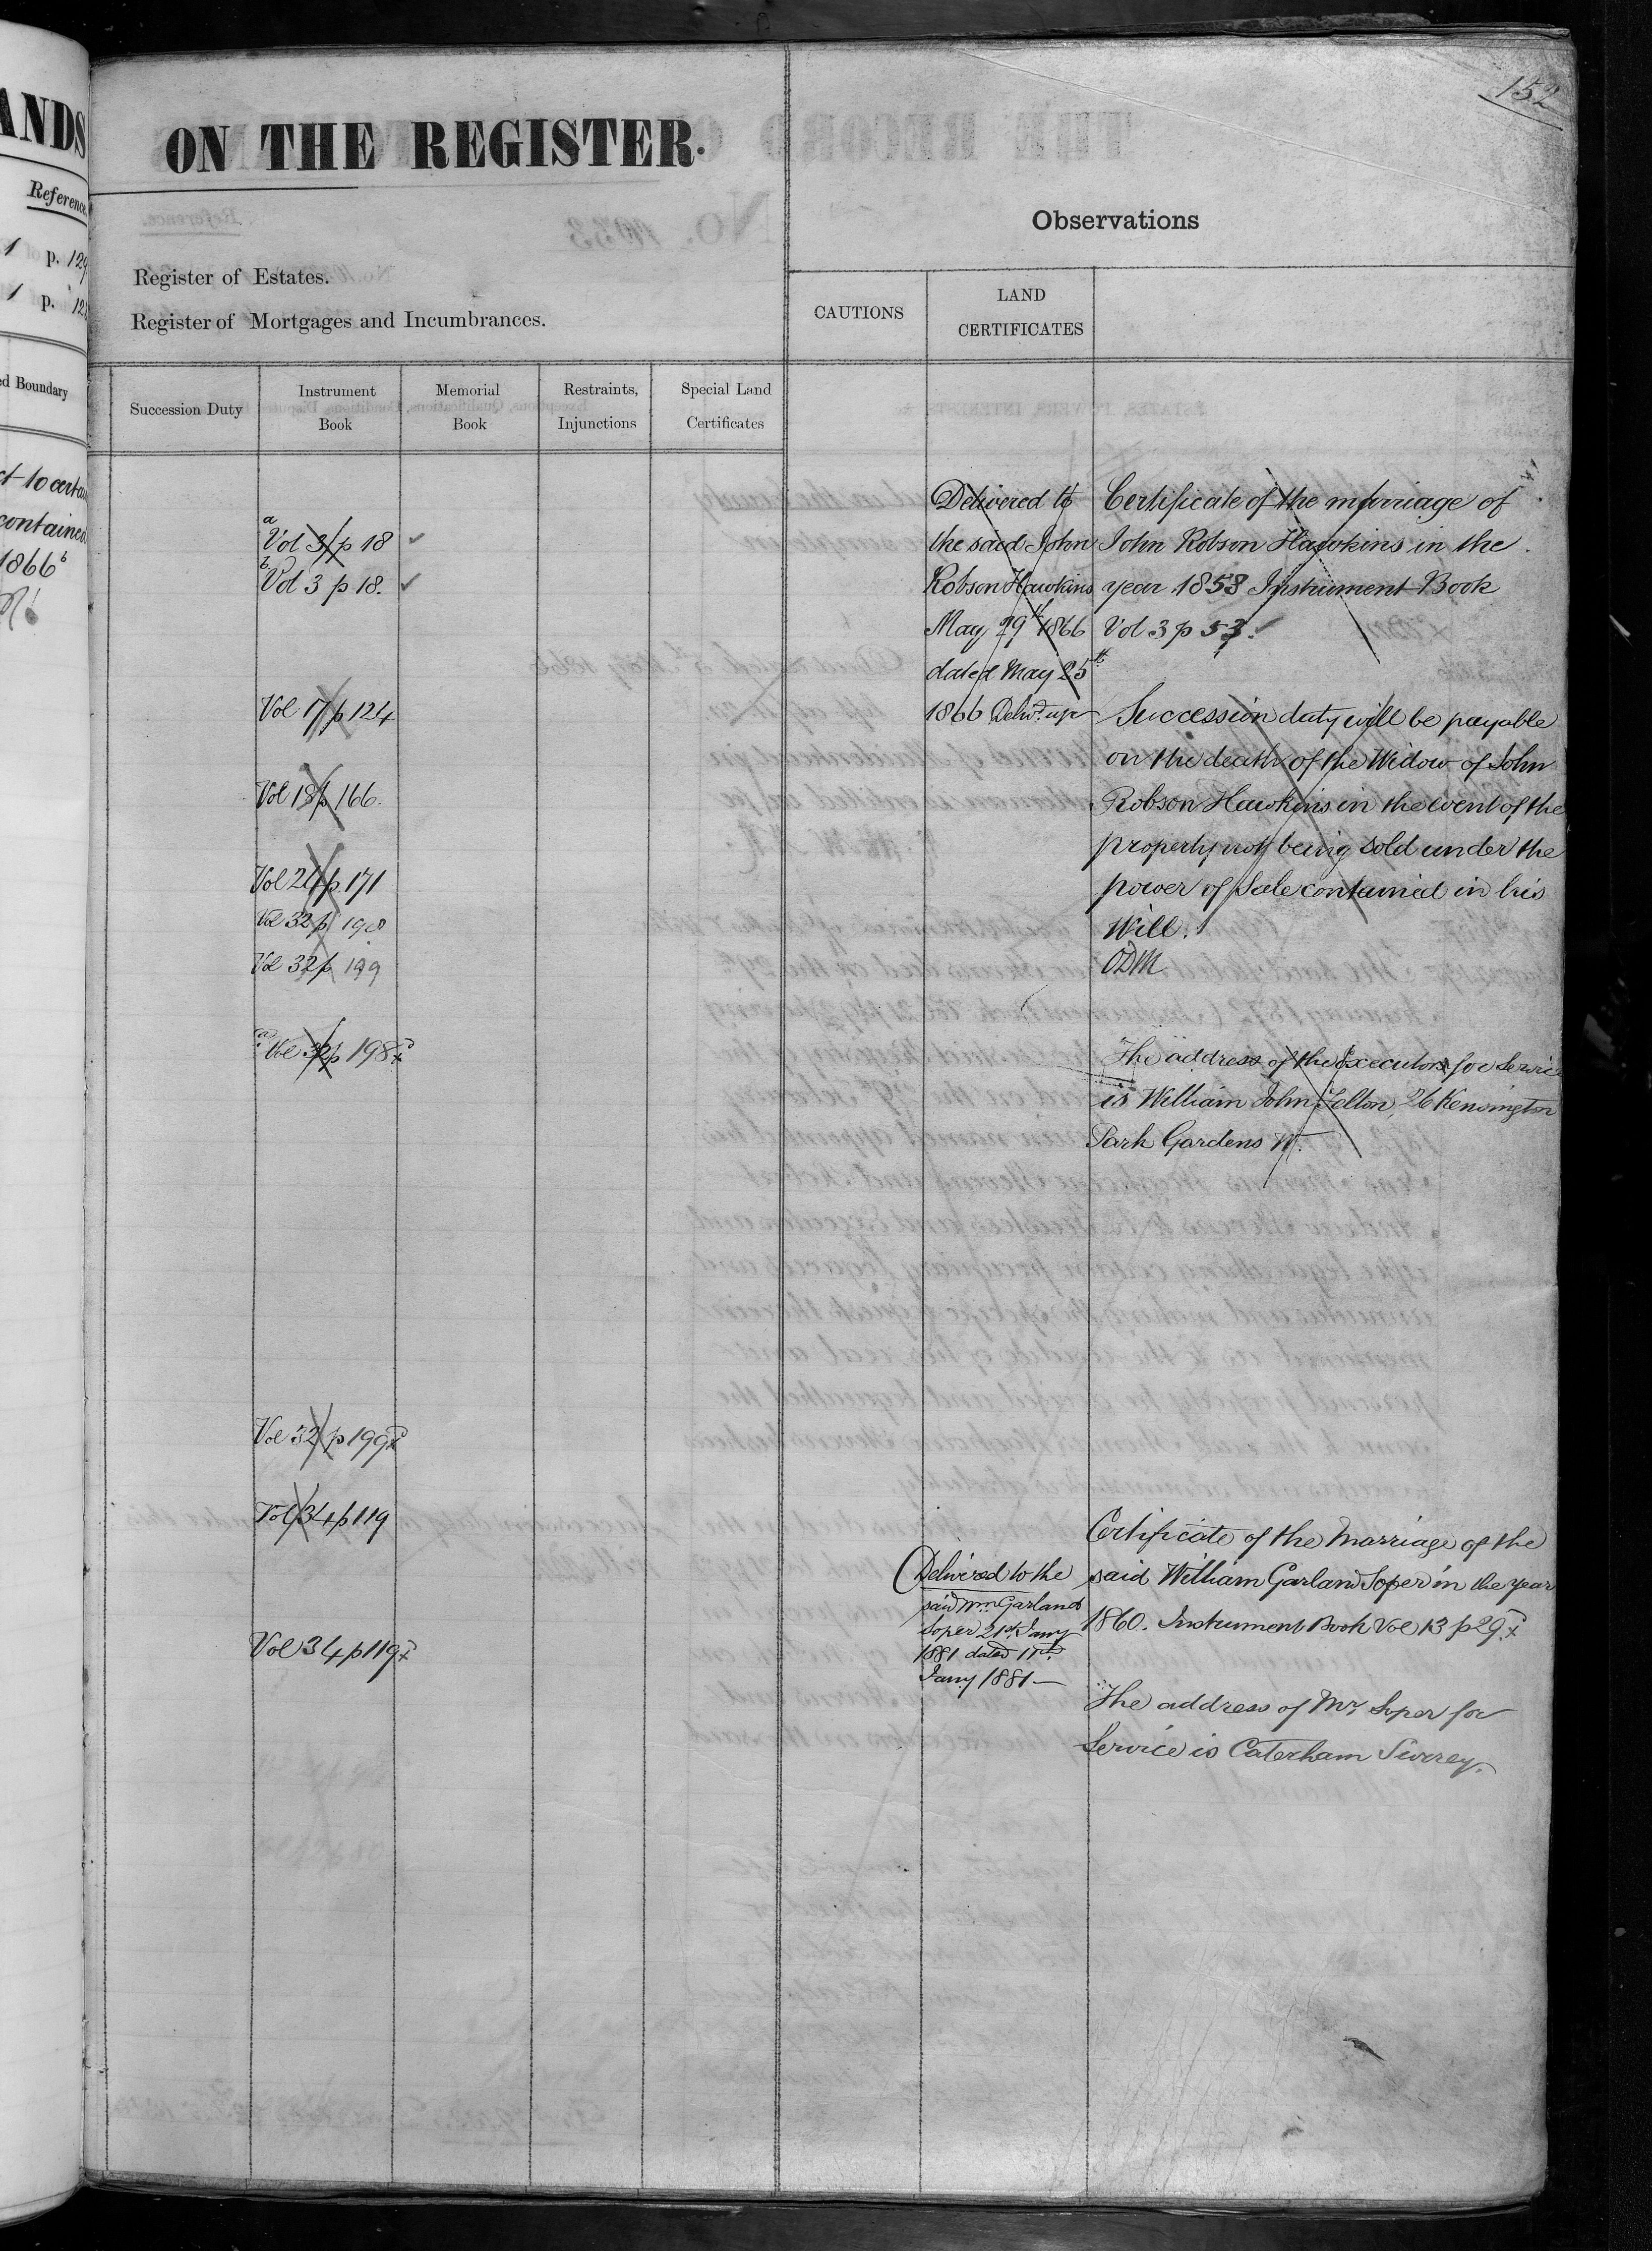 152
ANDS
Reference
1 p. 129
1 p.
ed Boundary
contained
1866 b
ON THE REGISTER.
Register of Estates.
Register of Mortgages and Incumbrances.
Observations
CAUTIONS
LAND
CERTIFICATES
Succession Duty
Instrument
Book
Memorial
Book
Restraints,
Injunctions
Special Land
Certificates
a
Vol 3 p 18 ✓
b
Vol 3 p 18. ✓
Vol 17 p 124
Vol 18 p 166.
Vol 24 p. 171
Vol 32 p 198
Vol 32 p 199
Vol 32 p 198
Vol 32 p 199
Vol 34 p 119
Vol 34 p 119
Delivered to
the said John
Robson Hawkins
May 29th 1866
dated May 25th
1866 Delivd. up
(Delivered to the
said Wm Garland
Soper 21st Jany
1881 dated 11th
Jany 1881 —
Certificate of the marriage of
John Robson Hawkins in the
year 1858 Instrument Book
Vol 3 p 53. ✓
Succession duty will be payable
on the death of the Widow of John
Robson Hawkins in the event of the
property not being sold under the
power of Sale contained in his
Will.
The address of the Executors for Service
is William John Felton, 26 Kensington
Park Gardens W.
Certificate of the Marriage of the
said William Garland Soper in the year
1860. Instrument Book Vol 13 p 29
The address of Mr Soper for
Service is Caterham Surrey.